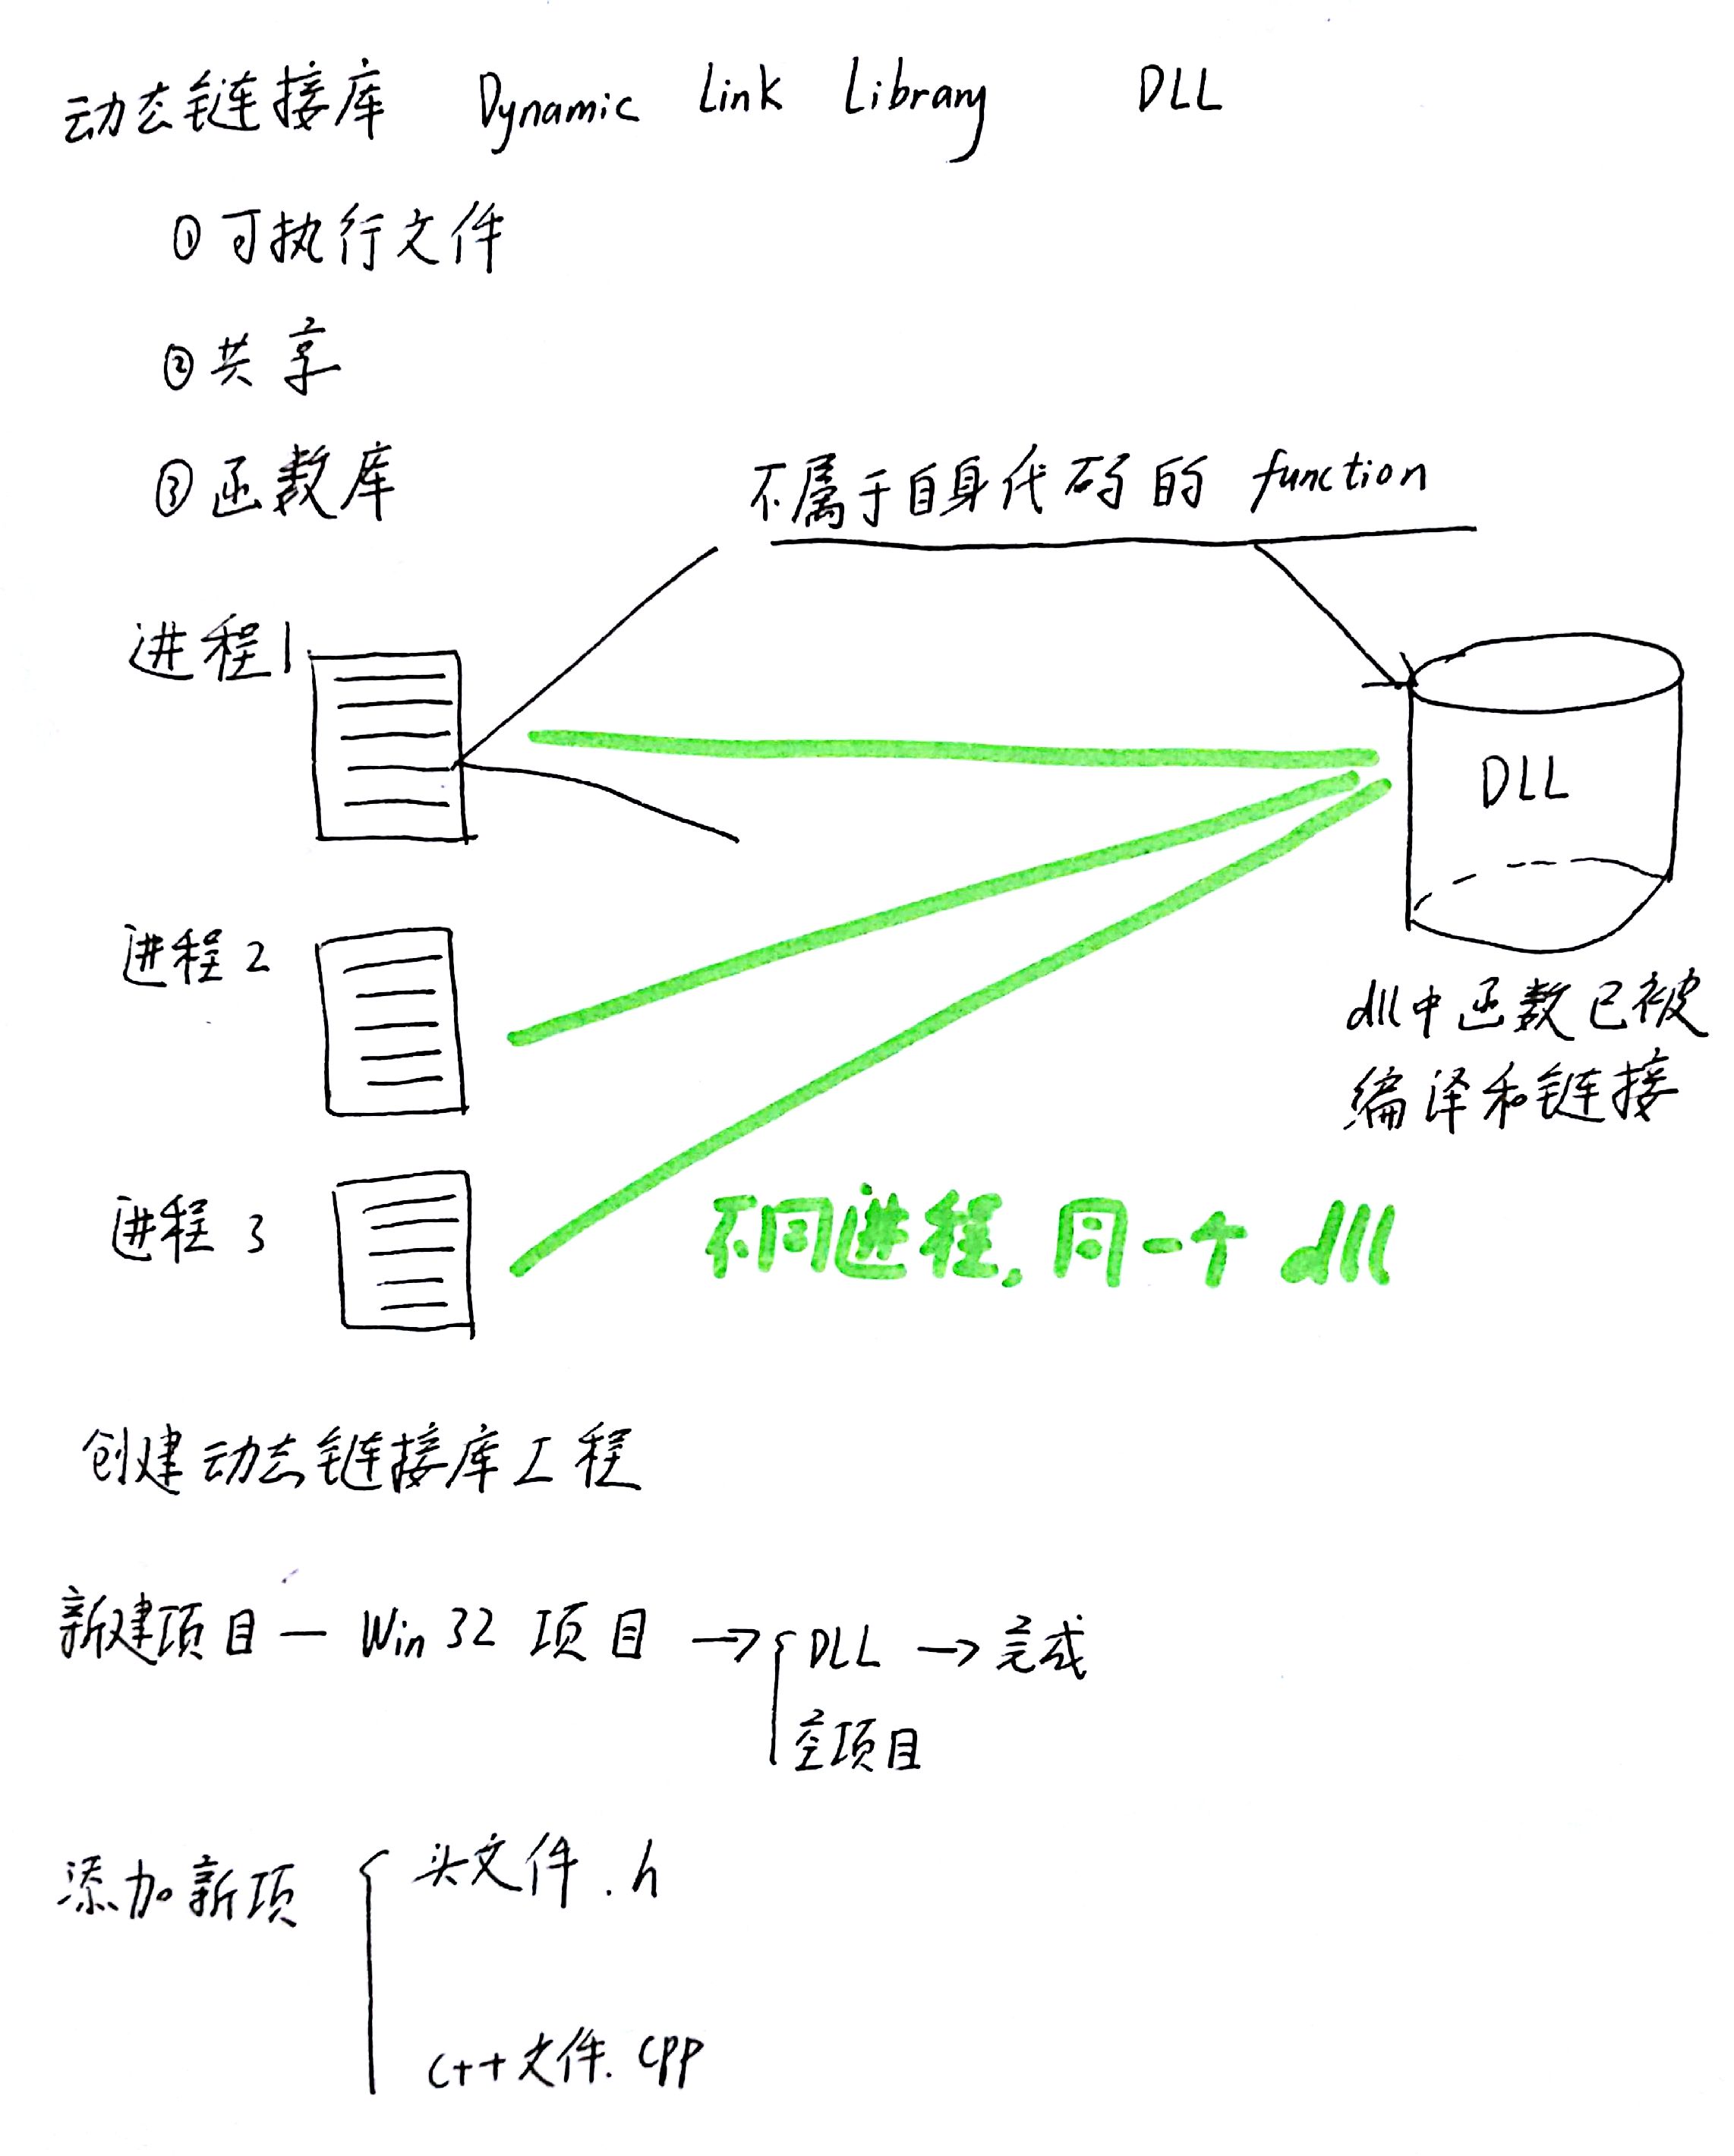 动态链接库 Dynamic Link Library DLL
①可执行文件
②共享
③函数库
不属于自身代码的 function
进程1
DLL
进程2
dll中函数已被
编译和链接
进程3
不同进程,同一个 dll
创建动态链接库工程
新建项目— Win32 项目 → DLL → 完成
空项目
添加新项
头文件.h
C++文件.cpp